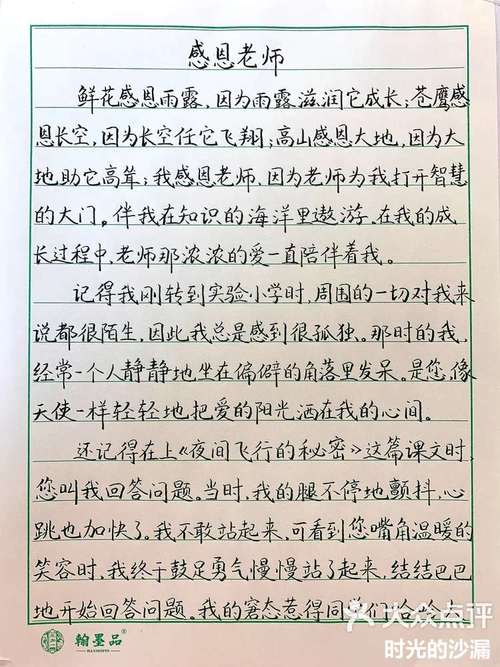 感恩老师
鲜花感恩雨露,因为雨露滋润它成长;苍鹰感
恩长空,因为长空任它飞翔;高山感恩大地,因为大
地助它高耸;我感恩老师,因为老师为我打开智慧
的大门。伴我在知识的海洋里遨游,在我的成
长过程中,老师那浓浓的爱一直陪伴着我。
记得我刚转到实验小学时,周围的一切对我来
说都很陌生,因此我总是感到很孤独。那时的我,
经常一个人静静地坐在偏僻的角落里发呆。是您,像
天使一样轻轻地把爱的阳光洒在我的心间。
还记得在上《夜间飞行的秘密》这篇课文时,
您叫我回答问题。当时,我的腿不停地颤抖,心
跳也加快了。我不敢站起来,可看到您嘴角温暖的
笑容时,我终于鼓足勇气慢慢站了起来,结结巴巴
地开始回答问题。我的窘态惹得同学们
翰墨品
大众点评
时光的沙漏